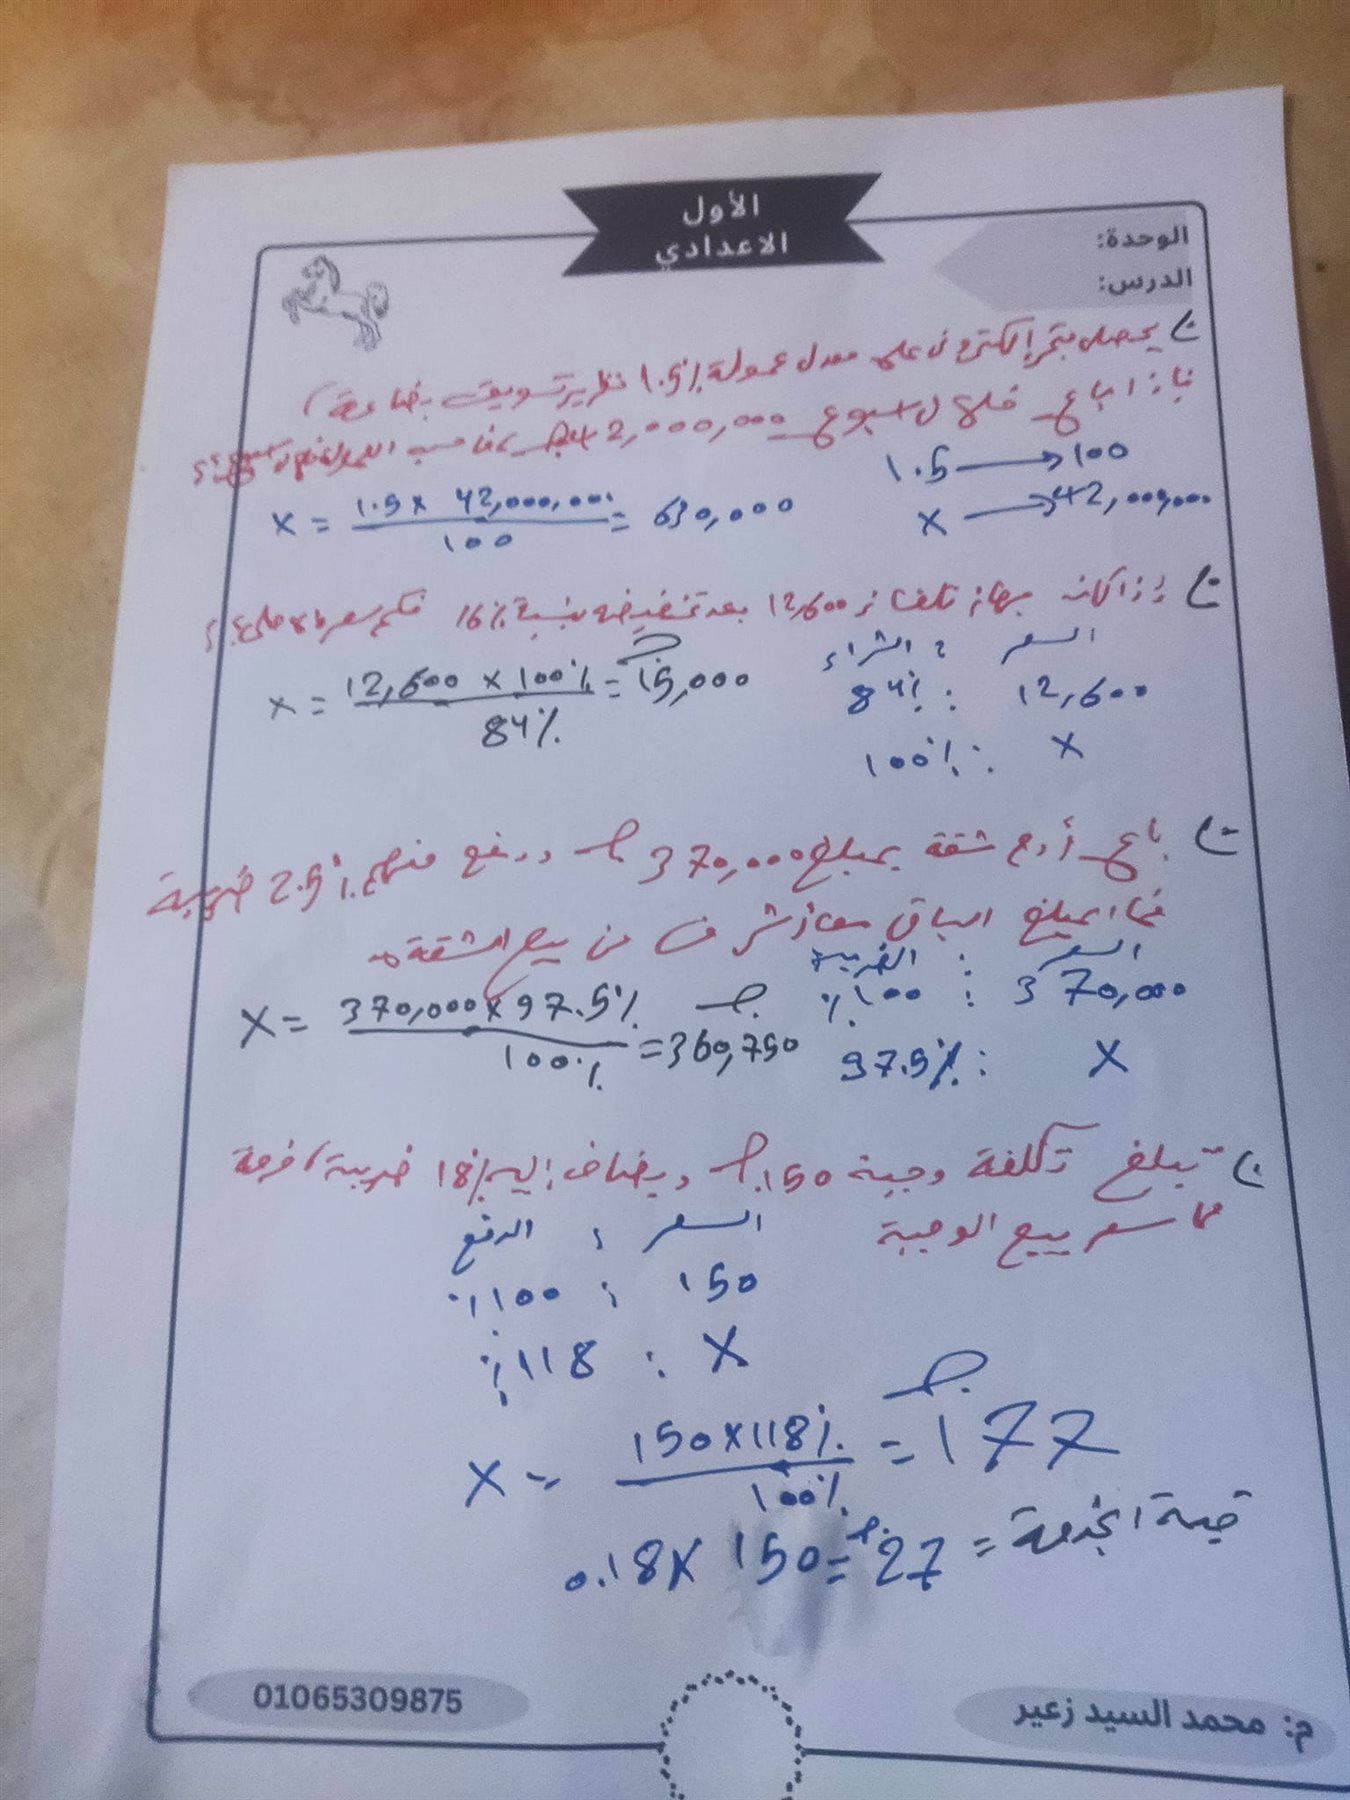 الأول
الاعدادي
الوحدة:
الدرس:
يحصل متجر إلكترونى على معدل عمولة 1.5% نظير تسويق بضاعة
فإذا باع خلال اسبوع 42,000,000 جـ، فاحسب العمولة
1.5 → 100
x → 42,000,000
x = 1.5 x 42,000,000 / 100 = 630,000
إذا كان جهاز تلفاز 12,600 بعد تخفيضه بنسبة 16% فكم سعره الاصلى؟
السعر : الشراء
12,600 : 84%
x : 100%
x = 12,600 x 100% / 84% = 15,000 جـ
باع أدم شقة بمبلغ 370,000 جـ ودفع منهم 2.5% ضريبة
فما المبلغ الباقى من بيع الشقة
السعر : الضريبة
370,000 : 100%
x : 97.5%
x = 370,000 x 97.5% / 100% = 360,750 جـ
تبلغ تكلفة وجبة 150 جـ ويضاف إليه 18% ضريبة
فما سعر بيع الوجبة
السعر : الدفع
150 : 100%
x : 118%
x = 150 x 118% / 100% = 177 جـ
قيمة الخدمة = 0.18 x 150 = 27 جـ
01065309875
م: محمد السيد زعير